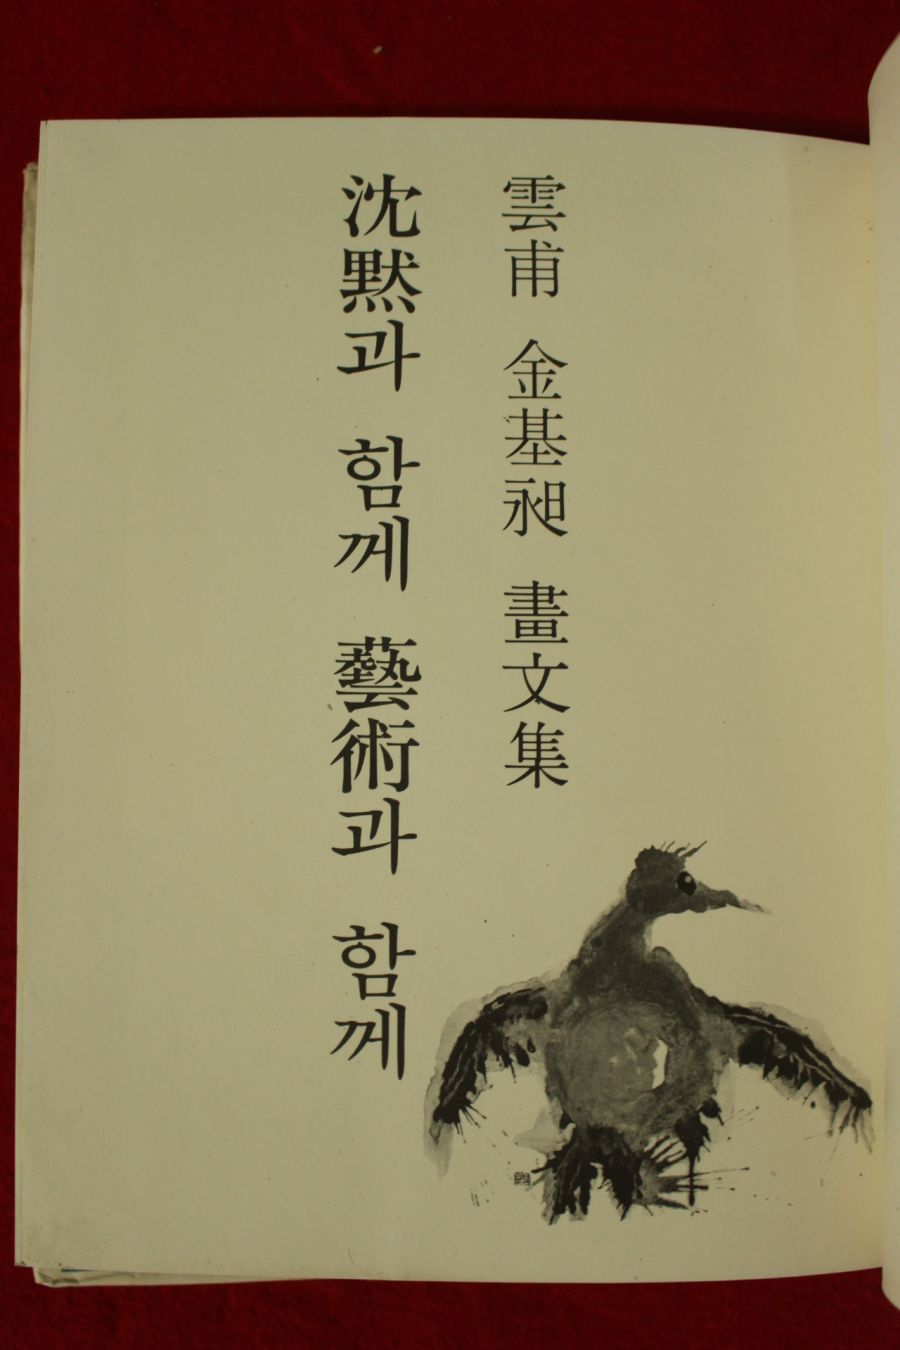 雲甫 金基昶 畫文集
沈默과 함께 藝術과 함께